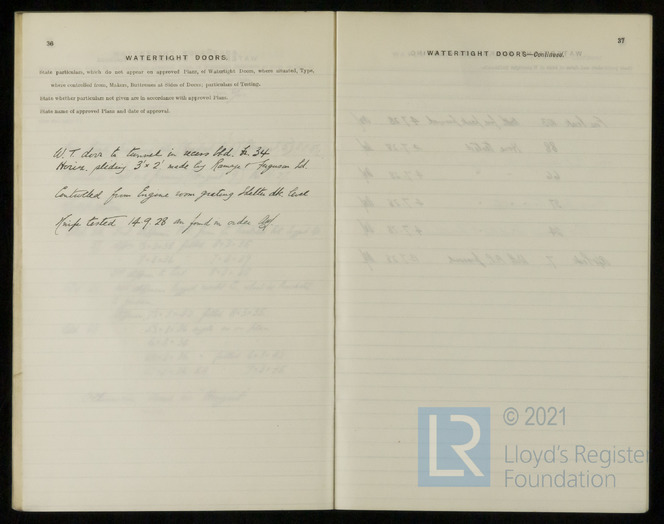 36
WATERTIGHT DOORS.
State particulars, which do not appear on approved Plans, of Watertight Doors, where situated, Type,
where controlled from, Makers, Buttresses at Sides of Doors, particulars of Testing.
State whether particulars not given are in accordance with approved Plans.
State name of approved Plans and date of approval.
W. T. door to tunnel in recess bhd. Fr. 34
Horiz. sliding 3' x 2' made by Ramage & Ferguson Ld.
Controlled from Engine room grating Shelter dk. level
tested 14.9.28 in order
37
WATERTIGHT DOORS—Continued.
© 2021
LR
Lloyd's Register
Foundation